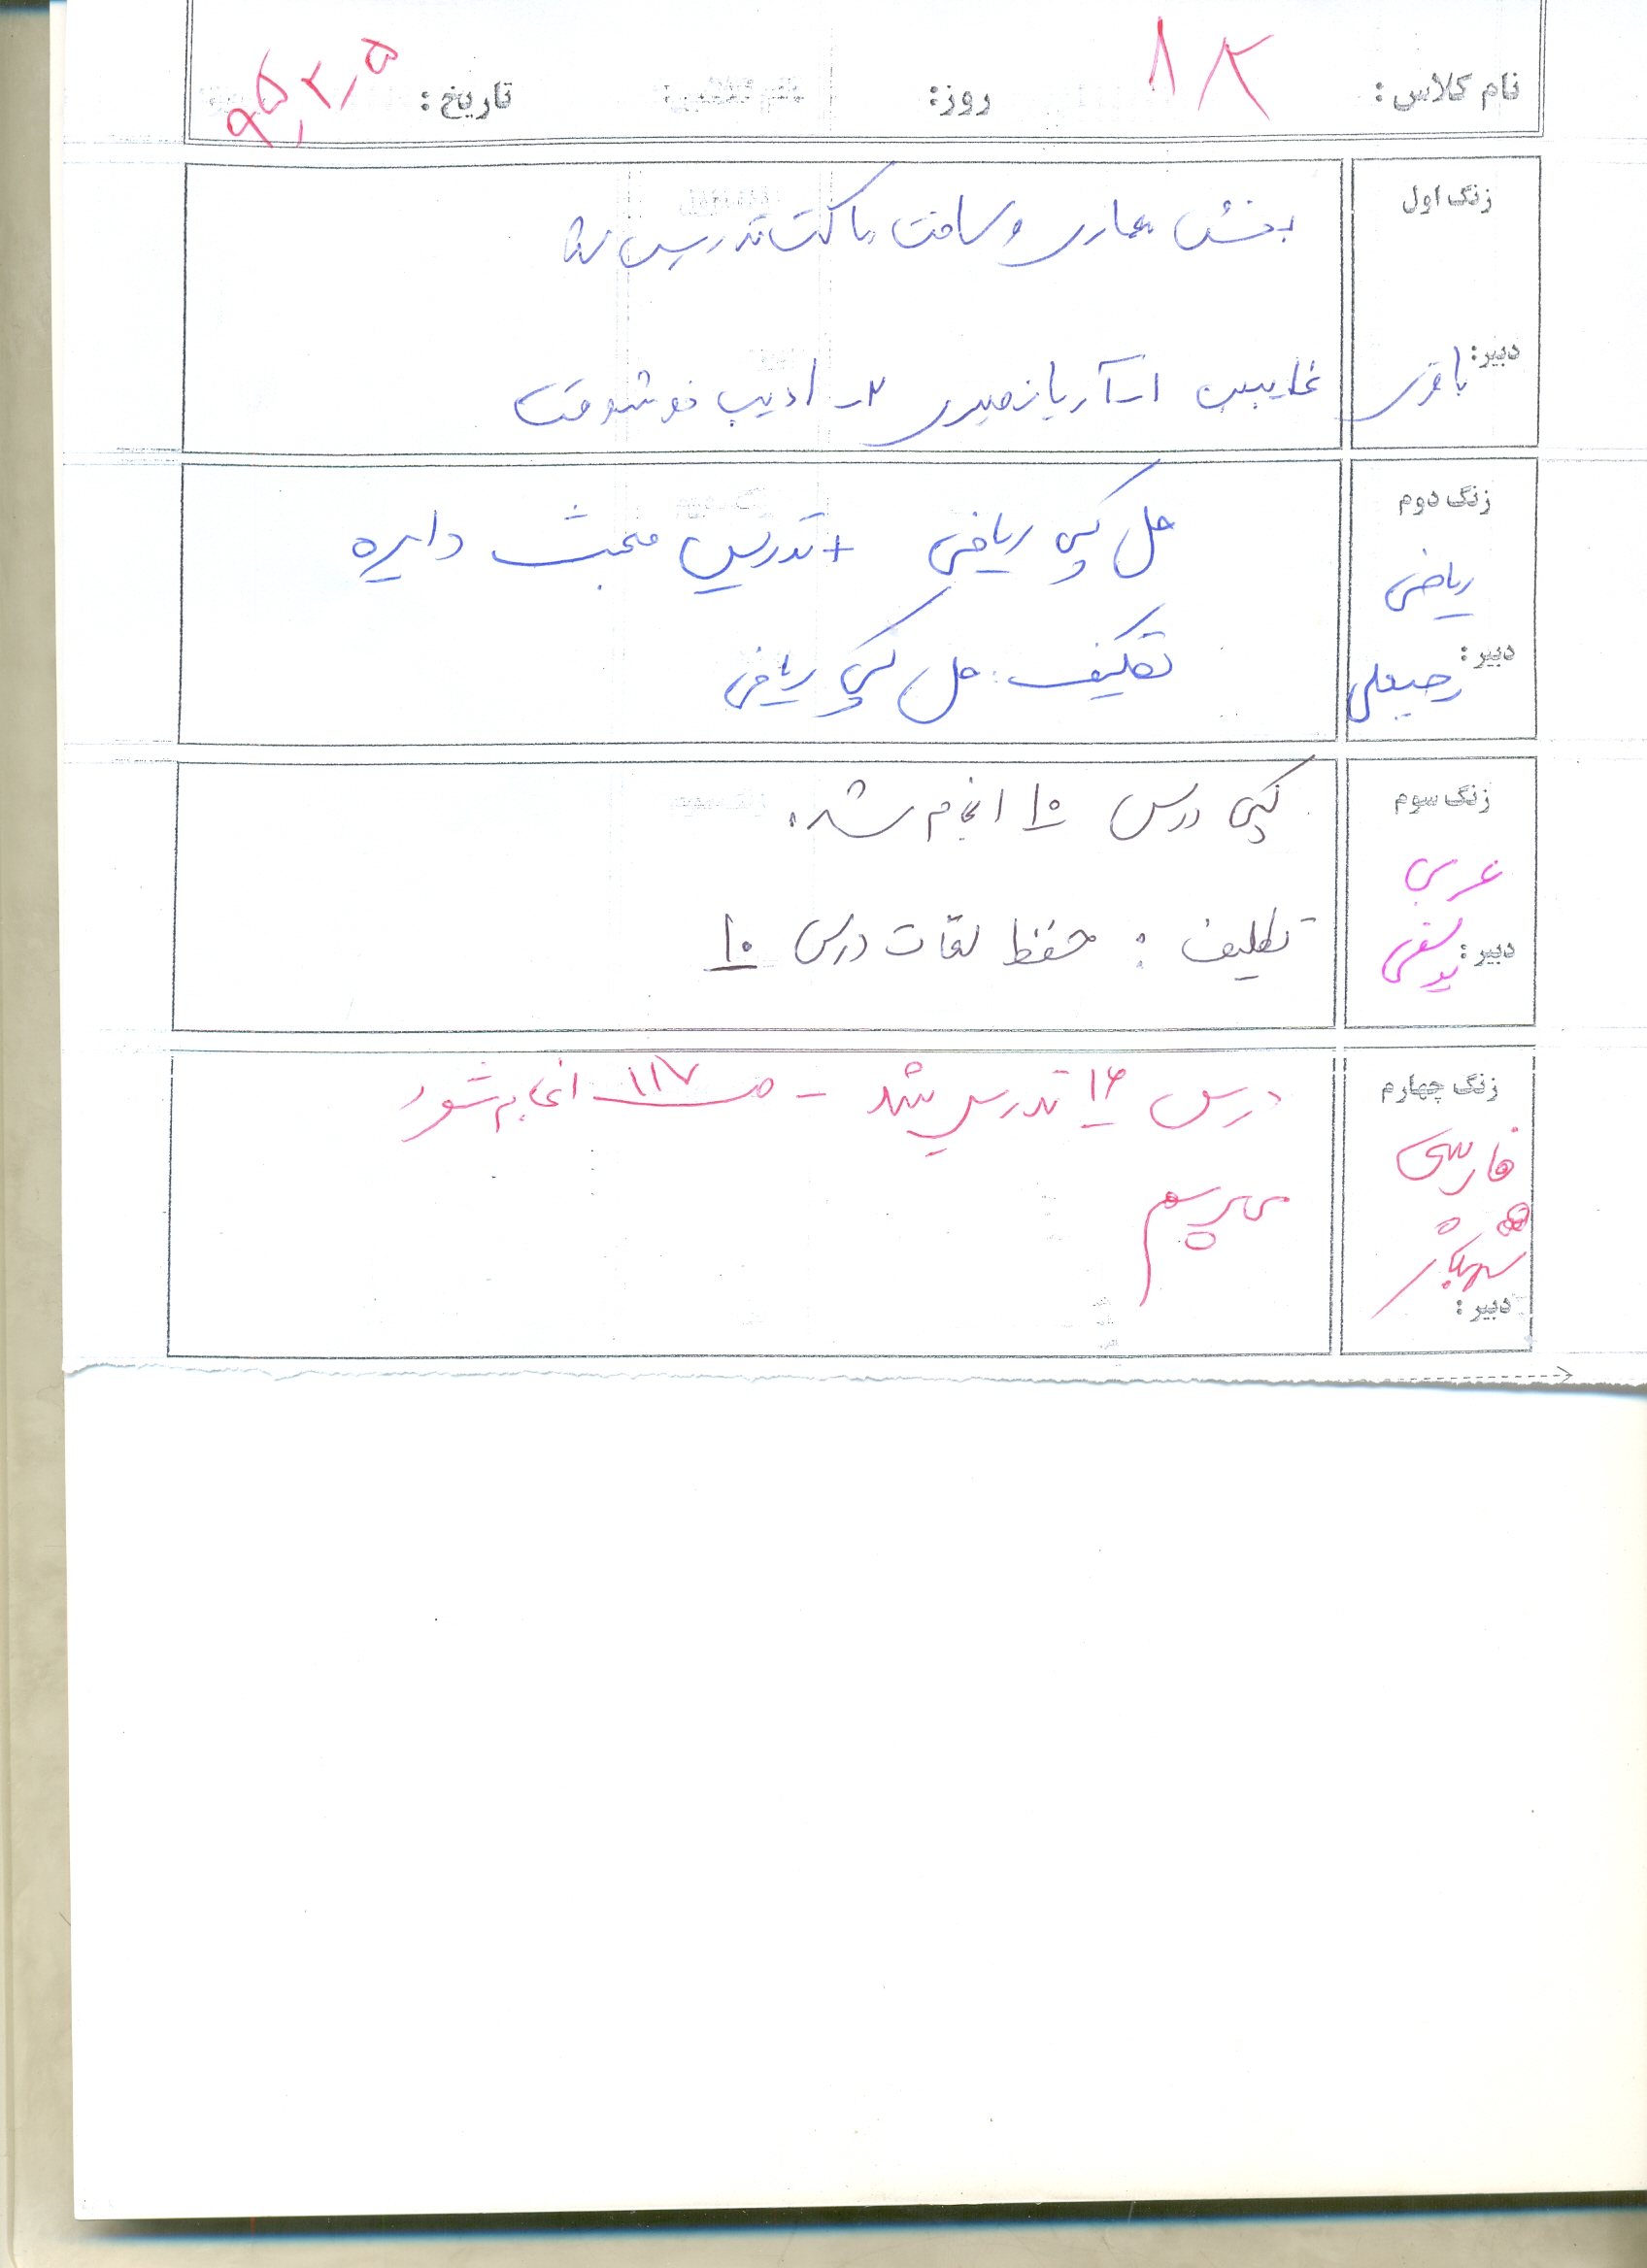 نام کلاس: ۸/۲ روز: تاریخ: ۹۵,۲,۵
زنگ اول
بخش معماری و ساخت ماکت تدریس شد
دبیر: باقری
غایبین ۱- آریا زمیدی ۲- ادیب خوشوقت
زنگ دوم
ریاضی
حل کپی ریاضی + تدریس مبحث دایره
دبیر: رجبعلی
تکلیف: حل کپی ریاضی
زنگ سوم
عربی
کپی درس ۱۰ انجام شد.
دبیر: یوسفی
تکلیف: حفظ لغات درس ۱۰
زنگ چهارم
فارسی
درس ۱۶ تدریس شد - ص ۱۱۷ انجام شود
دبیر: